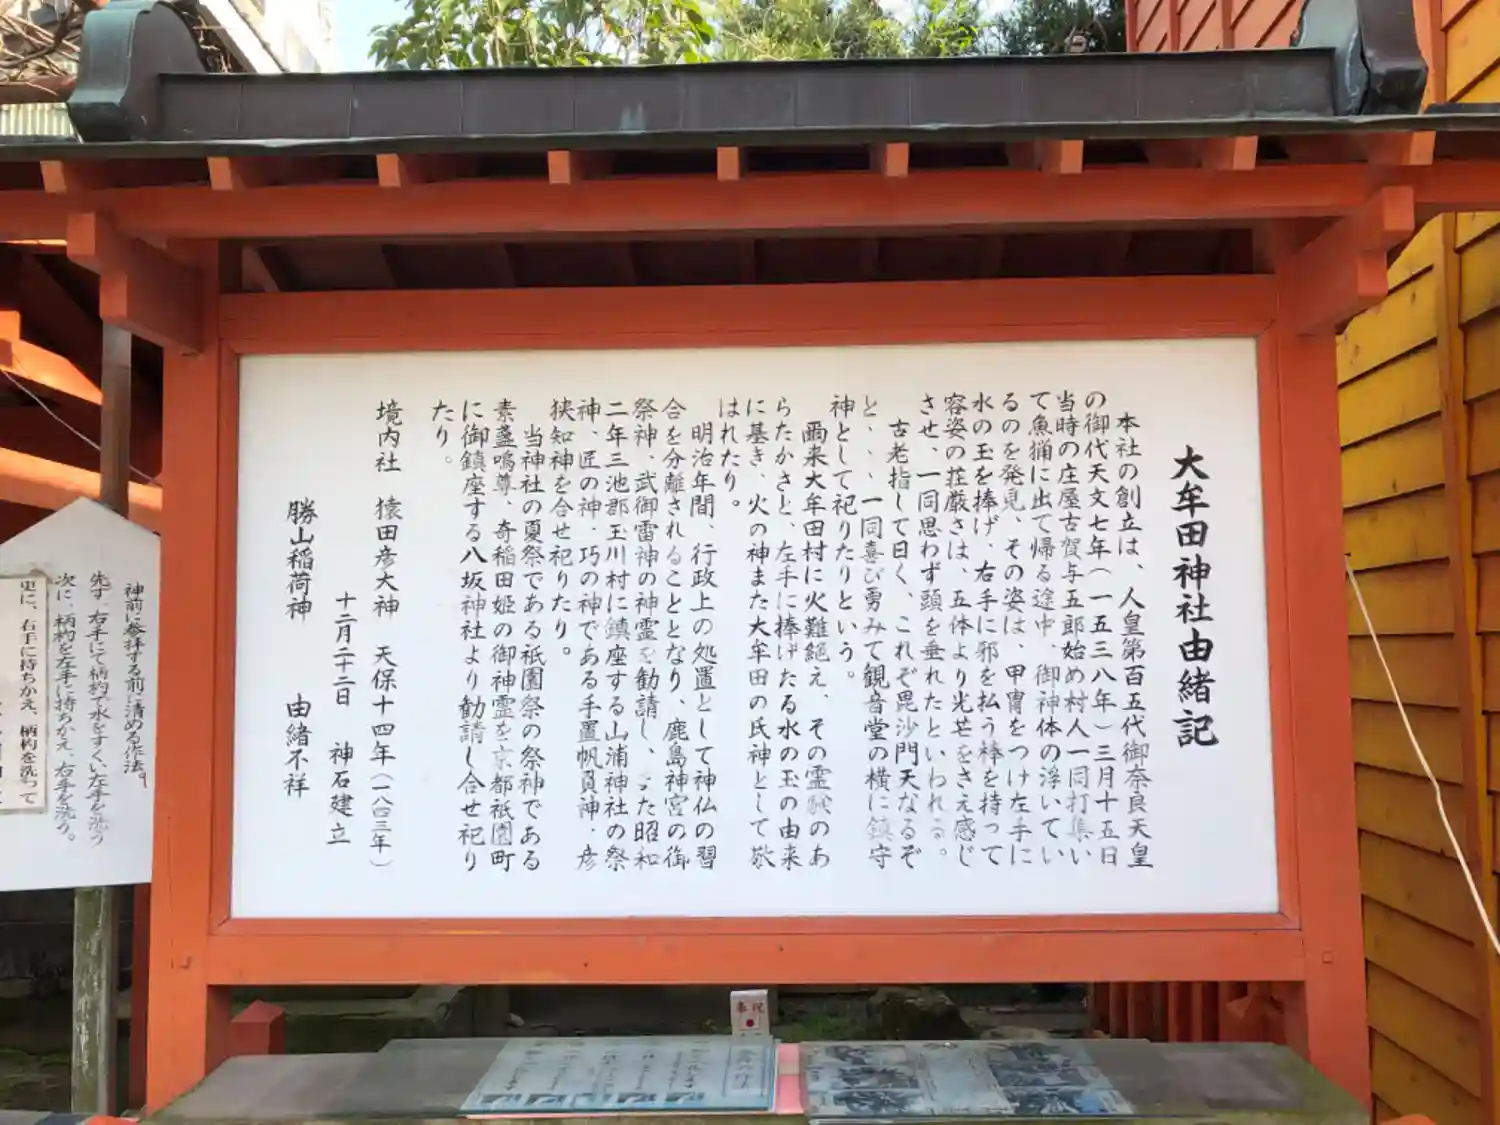 大牟田神社由緒記
本社の創立は、人皇第百五代御奈良天皇
の御代天文七年(一五三八年)三月十五日
当時の庄屋古賀与五郎始め村人一同打集い
て魚猟に出て帰る途中、御神体の浮いてい
るのを発見、その姿は、甲冑をつけ左手に
水の玉を捧げ、右手に邪を払う棒を持って
容姿の荘厳さは、五体より光芒をさえ感じ
させ、一同思わず頭を垂れたといわれる。
古老指して曰く、これぞ毘沙門天なるぞ
と、、、一同喜び勇みて観音堂の横に鎮守
神として祀りたりという。
爾来大牟田村に火難絶え、その霊験のあ
らたかさと、左手に捧げたる水の玉の由来
に基き、火の神また大牟田の氏神として敬
はれたり。
明治年間、行政上の処置として神仏の習
合を分離されることとなり、鹿島神宮の御
祭神、武御雷神の神霊を勧請し、また昭和
二年三池郡玉川村に鎮座する山浦神社の祭
神、匠の神・巧の神である手置帆負神・彦
狭知神を合せ祀りたり。
当神社の夏祭である祇園祭の祭神である
素盞嗚尊、奇稲田姫の御神霊を京都祇園町
に御鎮座する八坂神社より勧請し合せ祀り
たり。
境内社 猿田彦大神 天保十四年(一八四三年)
十二月二十二日 神石建立
勝山稲荷神 由緒不祥
神前に参拝する前に清める作法。
先ず、右手にて柄杓で水をすくい左手を洗う
次に、柄杓を左手に持ちかえ、右手を洗う。
更に、右手に持ちかえ、柄杓を洗って
奉祝